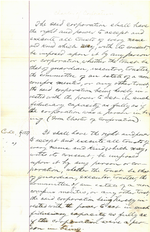 The said corporation shall have
the right and power to accept and
execute all trusts of every name
and kind which may, with its consent,
be imposed upon it by any person
or corporation, whether the trust be
that of guardian, executor, trustee,
the committee of an estate of a non
compos mentis, or any other trust,
the said corporation being hereby in-
vested with the power to act in such
fiduciary capacity as fully as if
the corporation were a person in
being
It shall have the right and power
to accept and execute all trusts of
every name and kind which may,
with its consent, be imposed
upon it by any person or corpo-
ration, whether the trust be that
of guardian, executor, trustee, the
committee of an estate of a non
compos mentis, or any other trust,
the said corporation being hereby in-
vested with the power to act in such
fiduciary capacity as fully as
if the corporation were a person
in being